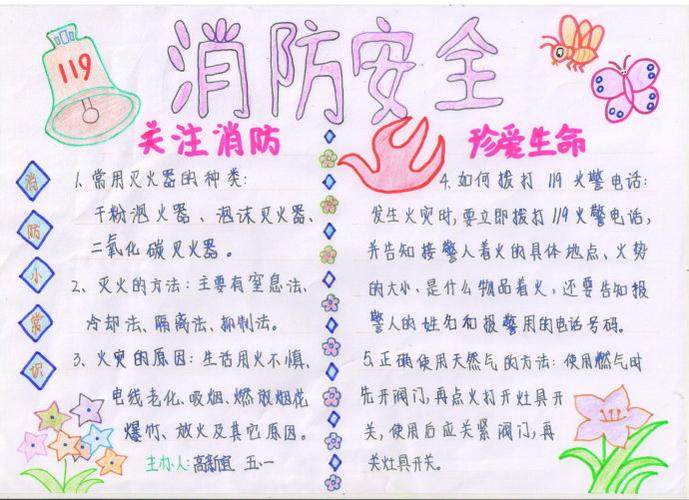 119
消防安全
关注消防
珍爱生命
消
防
小
常
识
1. 常用灭火器的种类:
干粉泡火器、泡沫灭火器、
二氧化碳灭火器。
2、灭火的方法:主要有窒息法、
冷却法、隔离法、抑制法。
3、火灾的原因:生活用火不慎、
电线老化、吸烟、燃放烟花
爆竹、放火及其它原因。
主办人: 五.一
4.如何拨打 119 火警电话:
发生火灾时,要立即拨打119火警电话,
并告知接警人着火的具体地点、火势
的大小、是什么物品着火,还要告知报
警人的姓名和报警用的电话号码。
5.正确使用天然气的方法:使用燃气时
先开阀门,再点火打开灶具开
关,使用后应关紧阀门,再
关灶具开关。